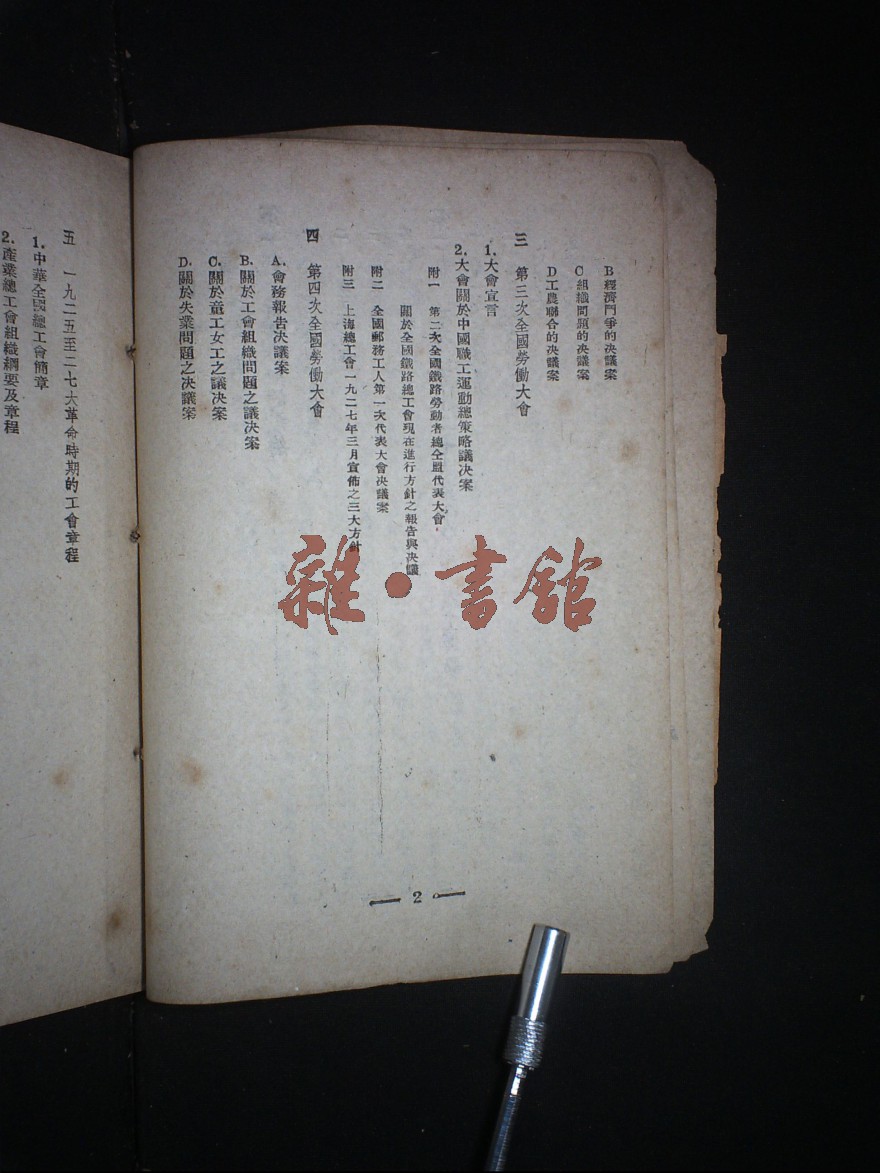 B 經濟鬥爭的決議案
C 組織問題的決議案
D 工農聯合的決議案
三　第三次全國勞働大會
1. 大會宣言
2. 大會關於中國職工運動總策略議決案
附一　第二次全國鐵路勞動者總仝盟代表大會
關於全國鐵路總工會現在進行方針之報告與決議
附二　全國郵務工人第一次代表大會決議案
附三　上海總工會一九二七年三月宣佈之三大方針
四　第四次全國勞働大會
A. 會務報告決議案
B. 關於工會組織問題之議決案
C. 關於童工女工之議決案
D. 關於失業問題之決議案
2
五　一九二五至二七大革命時期的工會章程
1. 中華全國總工會簡章
2. 產業總工會組織綱要及章程
雜·書館